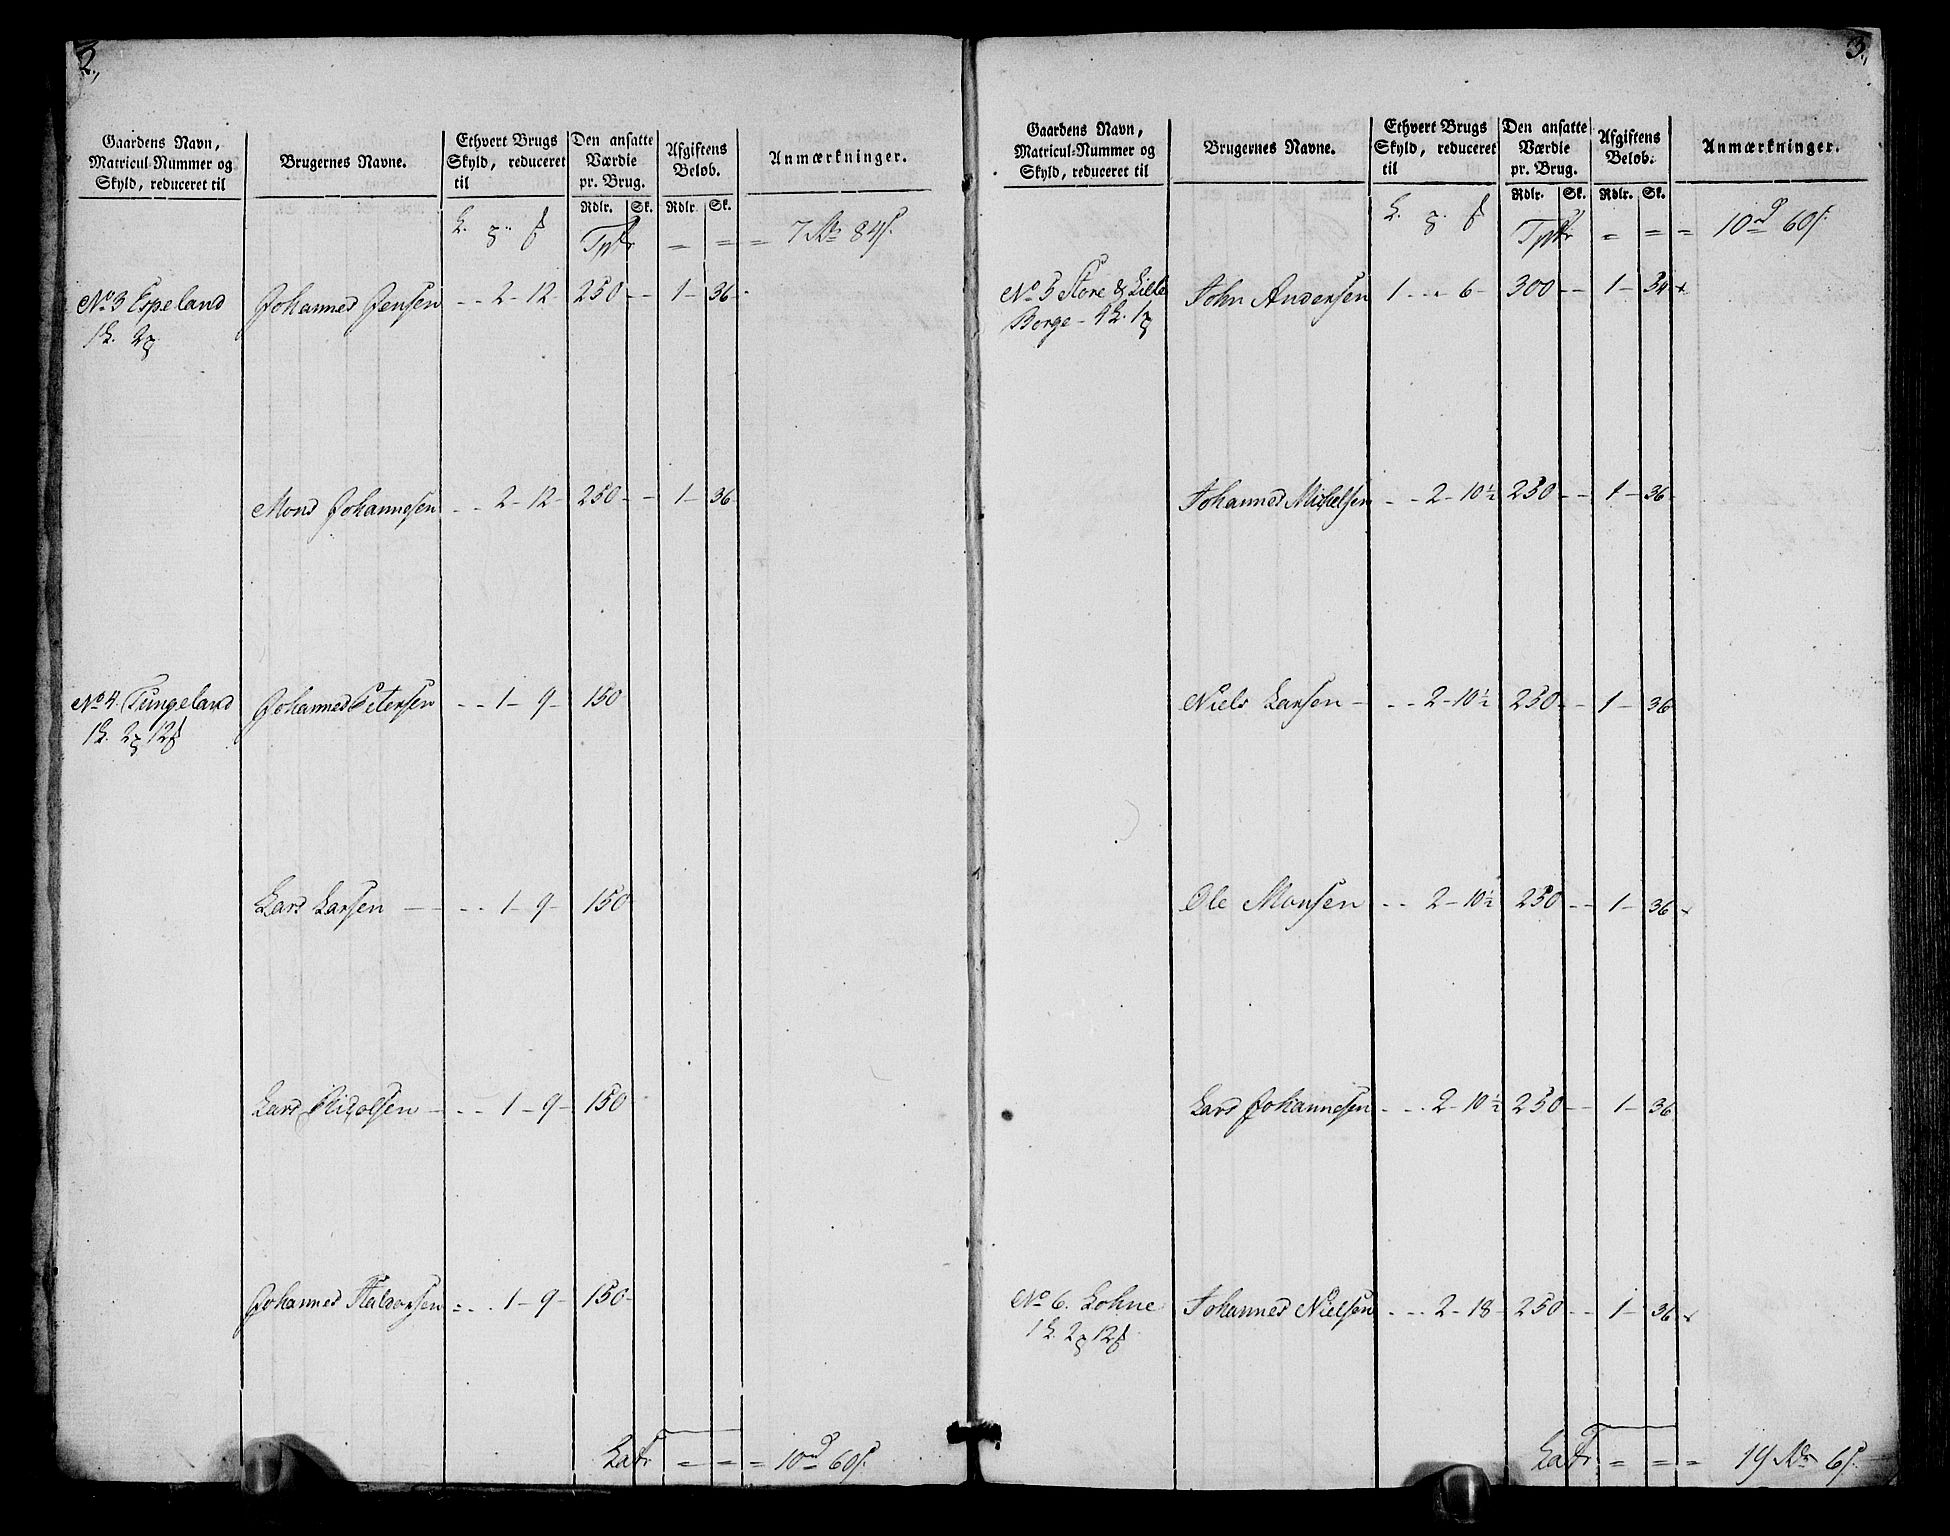 2.,
Gaardens Navn, Matricul-Nummer og Skyld, reduceret til
Brugernes Navne.
Ethvert Brugs Skyld, reduceret til
Den ansatte Værdie pr. Brug.
Afgiftens Beløb.
Anmærkninger.
Rdlr. Sk. Rdlr. Sk.
Tptr = = = 7 Rdr 84 s.
No 3 Espeland Johannes Jensen - - 2 - 12 - 250 - - 1 - 36 -
Mons Johannesen - - 2 - 12 - 250 - - 1 - 36
No 4. Tungeland Johannes Petersen - - 1 - 9 - 150
Lars Larsen - - - 1 - 9 - 150
Lars - - - 1 - 9 - 150
Johannes Haldorsen - - 1 - 9 - 150
Latr = = = 10 rd 60 s.
3.,
Gaardens Navn, Matricul-Nummer og Skyld, reduceret til
Brugernes Navne.
Ethvert Brugs Skyld, reduceret til
Den ansatte Værdie pr. Brug.
Afgiftens Beløb.
Anmærkninger.
Rdlr. Sk. Rdlr. Sk.
Tptr = = = 10 rd 60 s.
No 5 Store & Lille John Andersen 1 - - 6 - 300 - - 1 - 54
Borge
Johannes Michelsen - - 2 - 10 ½ 250 - - 1 - 36
Niels Larsen - - - 2 - 10 ½ 250 - - 1 - 36
Ole Monsen - - 2 - 10 ½ 250 - - 1 - 36
Lars Johannesen - - - 2 - 10 ½ 250 - - 1 - 36
No 6. Lohne Johannes Nielsen - - - 2 - 18 - 250 - - 1 - 36
Latr = = = 19 Rdr 6 s.